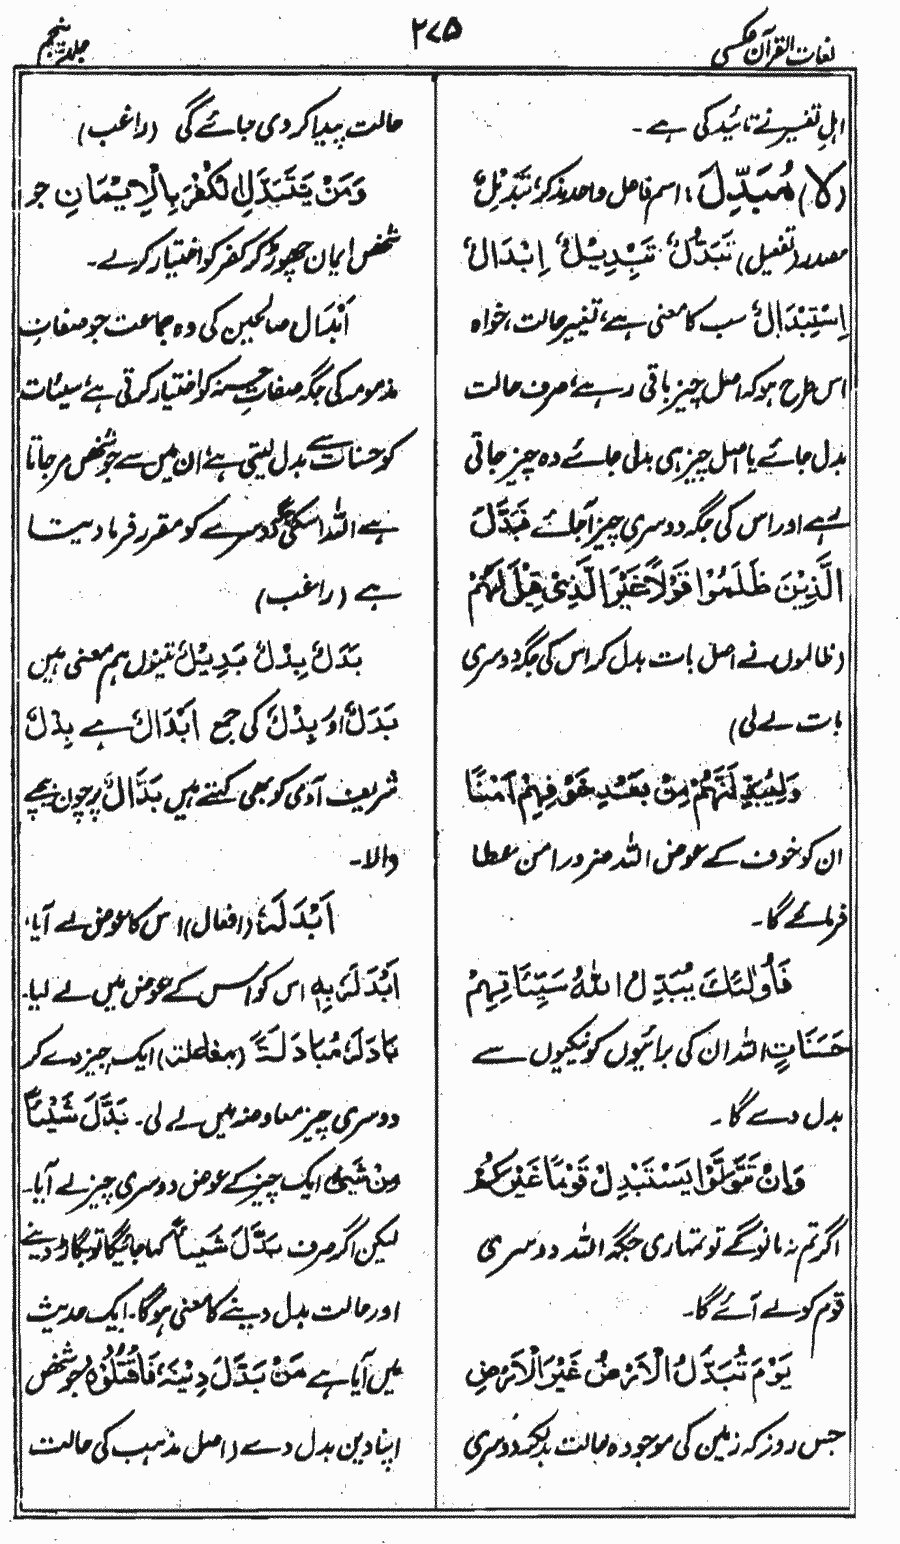 لغات القرآن عکسی
۲۷۵
جلد پنجم
اہلِ تفسیر نے تائید کی ہے۔
(لَا) مُبَدِّلَ: اسم فاعل واحد مذکر، تَبْدِیْلٌ
مصدر (تفعیل) تَبَدُّلٌ، تَبْدِیْلٌ، اِبْدَالٌ
اِسْتِبْدَالٌ سب کا معنی ہے، تغییر حالت، خواہ
اس طرح ہو کہ اصل چیز باقی رہے، صرف حالت
بدل جائے یا اصل چیز ہی بدلی جائے وہ چیز جاتی
رہے اور اس کی جگہ دوسری چیز آجائے فَبَدَّلَ
الَّذِیْنَ ظَلَمُوْا قَوْلًا غَیْرَ الَّذِیْ قِیْلَ لَهُمْ
(ظالموں نے اصل بات بدل کر اس کی جگہ دوسری
بات لے لی)
وَلَیُبَدِّلَنَّهُمْ مِنْ بَعْدِ خَوْفِهِمْ اَمْنًا
ان کو خوف کے عوض اللہ ضرور امن عطا
فرمائے گا۔
فَاُولٰئِكَ یُبَدِّلُ اللّٰهُ سَیِّئَاتِهِمْ
حَسَنَاتٍ اللہ ان کی برائیوں کو نیکیوں سے
بدل دے گا۔
وَاِنْ تَتَوَلَّوْا یَسْتَبْدِلْ قَوْمًا غَیْرَكُمْ
اگر تم نہ مانو گے تو تمہاری جگہ اللہ دوسری
قوم کو لے آئے گا۔
یَوْمَ تُبَدَّلُ الْاَرْضُ غَیْرَ الْاَرْضِ
جس روز کہ زمین کی موجودہ حالت بدلکر دوسری
حالت پیدا کر دی جائے گی (راغب)
وَمَنْ یَتَبَدَّلِ الْكُفْرَ بِالْاِیْمَانِ جو
شخص ایمان چھوڑ کر کفر کو اختیار کرلے۔
اَبْدَال صالحین کی وہ جماعت جو صفاتِ
مذمومہ کی جگہ صفاتِ حسنہ کو اختیار کرتی ہے، سیئات
کو حسنات سے بدل لیتی ہے، ان میں سے جو شخص مرجاتا
ہے اللہ اسکی جگہ دوسرے کو مقرر فرما دیتا
ہے (راغب)
بَدَلٌ بِدْلٌ بَدِیْلٌ تینوں ہم معنی ہیں
بَدَلٌ اور بِدْلٌ کی جمع اَبْدَالٌ ہے بِدْلٌ
شریف آدمی کو بھی کہتے ہیں بَدَّالٌ پرچون بیچنے
والا۔
اَبْدَلَهٗ (افعال) اس کا عوض لے آیا،
اَبْدَلَهٗ بِهٖ اس کو اُس کے عوض میں لے لیا۔
بَادَلَهٗ مُبَادَلَةً (مفاعلت) ایک چیز دے کر
دوسری چیز معاوضہ میں لے لی۔ بَدَّلَ شَیْئًا
مِنْ شَیْئٍ ایک چیز کے عوض دوسری چیز لے آیا۔
لیکن اگر صرف بَدَّلَ شَیْئًا کہا جائیگا تو بگاڑ دینے
اور حالت بدل دینے کا معنی ہوگا۔ ایک حدیث
میں آیا ہے مَنْ بَدَّلَ دِیْنَهٗ فَاقْتُلُوْهُ جو شخص
اپنا دین بدل دے (اصل مذہب کی حالت